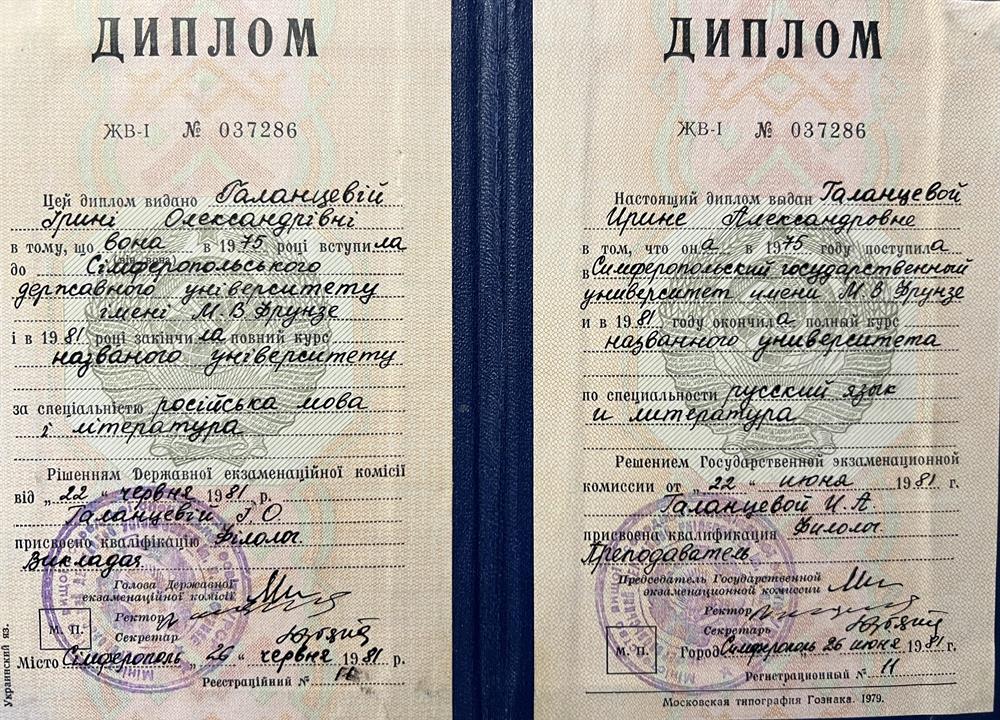 ДИПЛОМ
ЖВ-І № 037286
Цей диплом видано Галанцевій
Ірині Олександрівні
в тому, що вона в 1975 році вступила
(він, вона)
до Сімферопольського
державного університету
імені М. В Фрунзе
і в 1981 році закінчила повний курс
названого університету
за спеціальністю російська мова
і література
Рішенням Державної екзаменаційної комісії
від „22“ червня 1981 р.
Галанцевій І. О
присвоєно кваліфікацію Філолог
Викладач
Голова Державної
екзаменаційної комісії
Ректор
Секретар
М. П.
Місто Сімферополь „26“ червня 1981 р.
Реєстраційний № 11
Украинский яз.
ДИПЛОМ
ЖВ-І № 037286
Настоящий диплом выдан Галанцевой
Ирине Александровне
в том, что она в 1975 году поступила
в Симферопольский государственный
университет имени М. В. Фрунзе
и в 1981 году окончила полный курс
названного университета
по специальности русский язык
и литература
Решением Государственной экзаменационной
комиссии от „22“ июня 1981 г.
Галанцевой И. А.
присвоена квалификация Филолог
Преподаватель
Председатель Государственной
экзаменационной комиссии
Ректор
Секретарь
М. П.
Город Симферополь 26 июня 1981 г.
Регистрационный № 11
Московская типография Гознака. 1979.